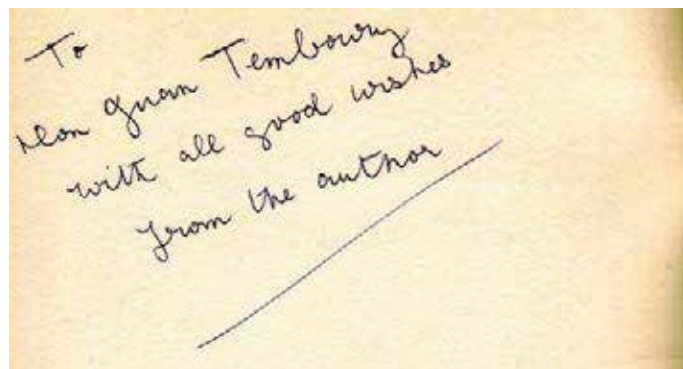 To
Don Juan Temboury
with all good wishes
from the author